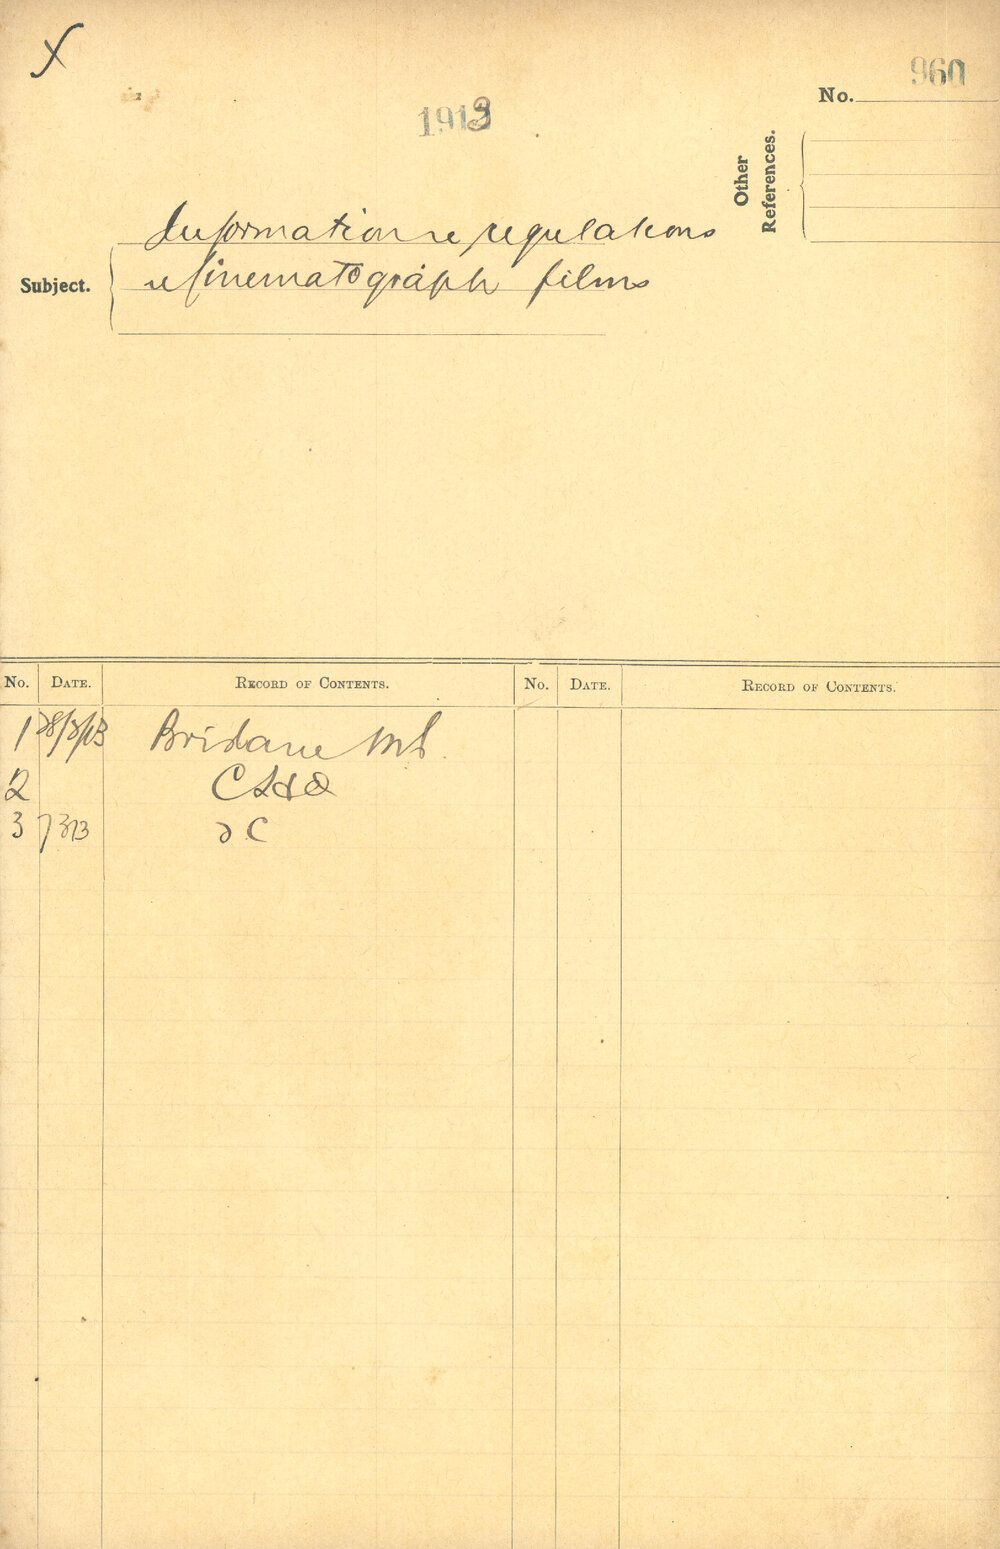 X
960
No.
1913
Other
References.
Information re regulations
Subject.
re Cinematograph films
No. DATE. RECORD OF CONTENTS. No. DATE. RECORD OF CONTENTS.
1 28/2/13 Brisbane
2
3 7 3 13